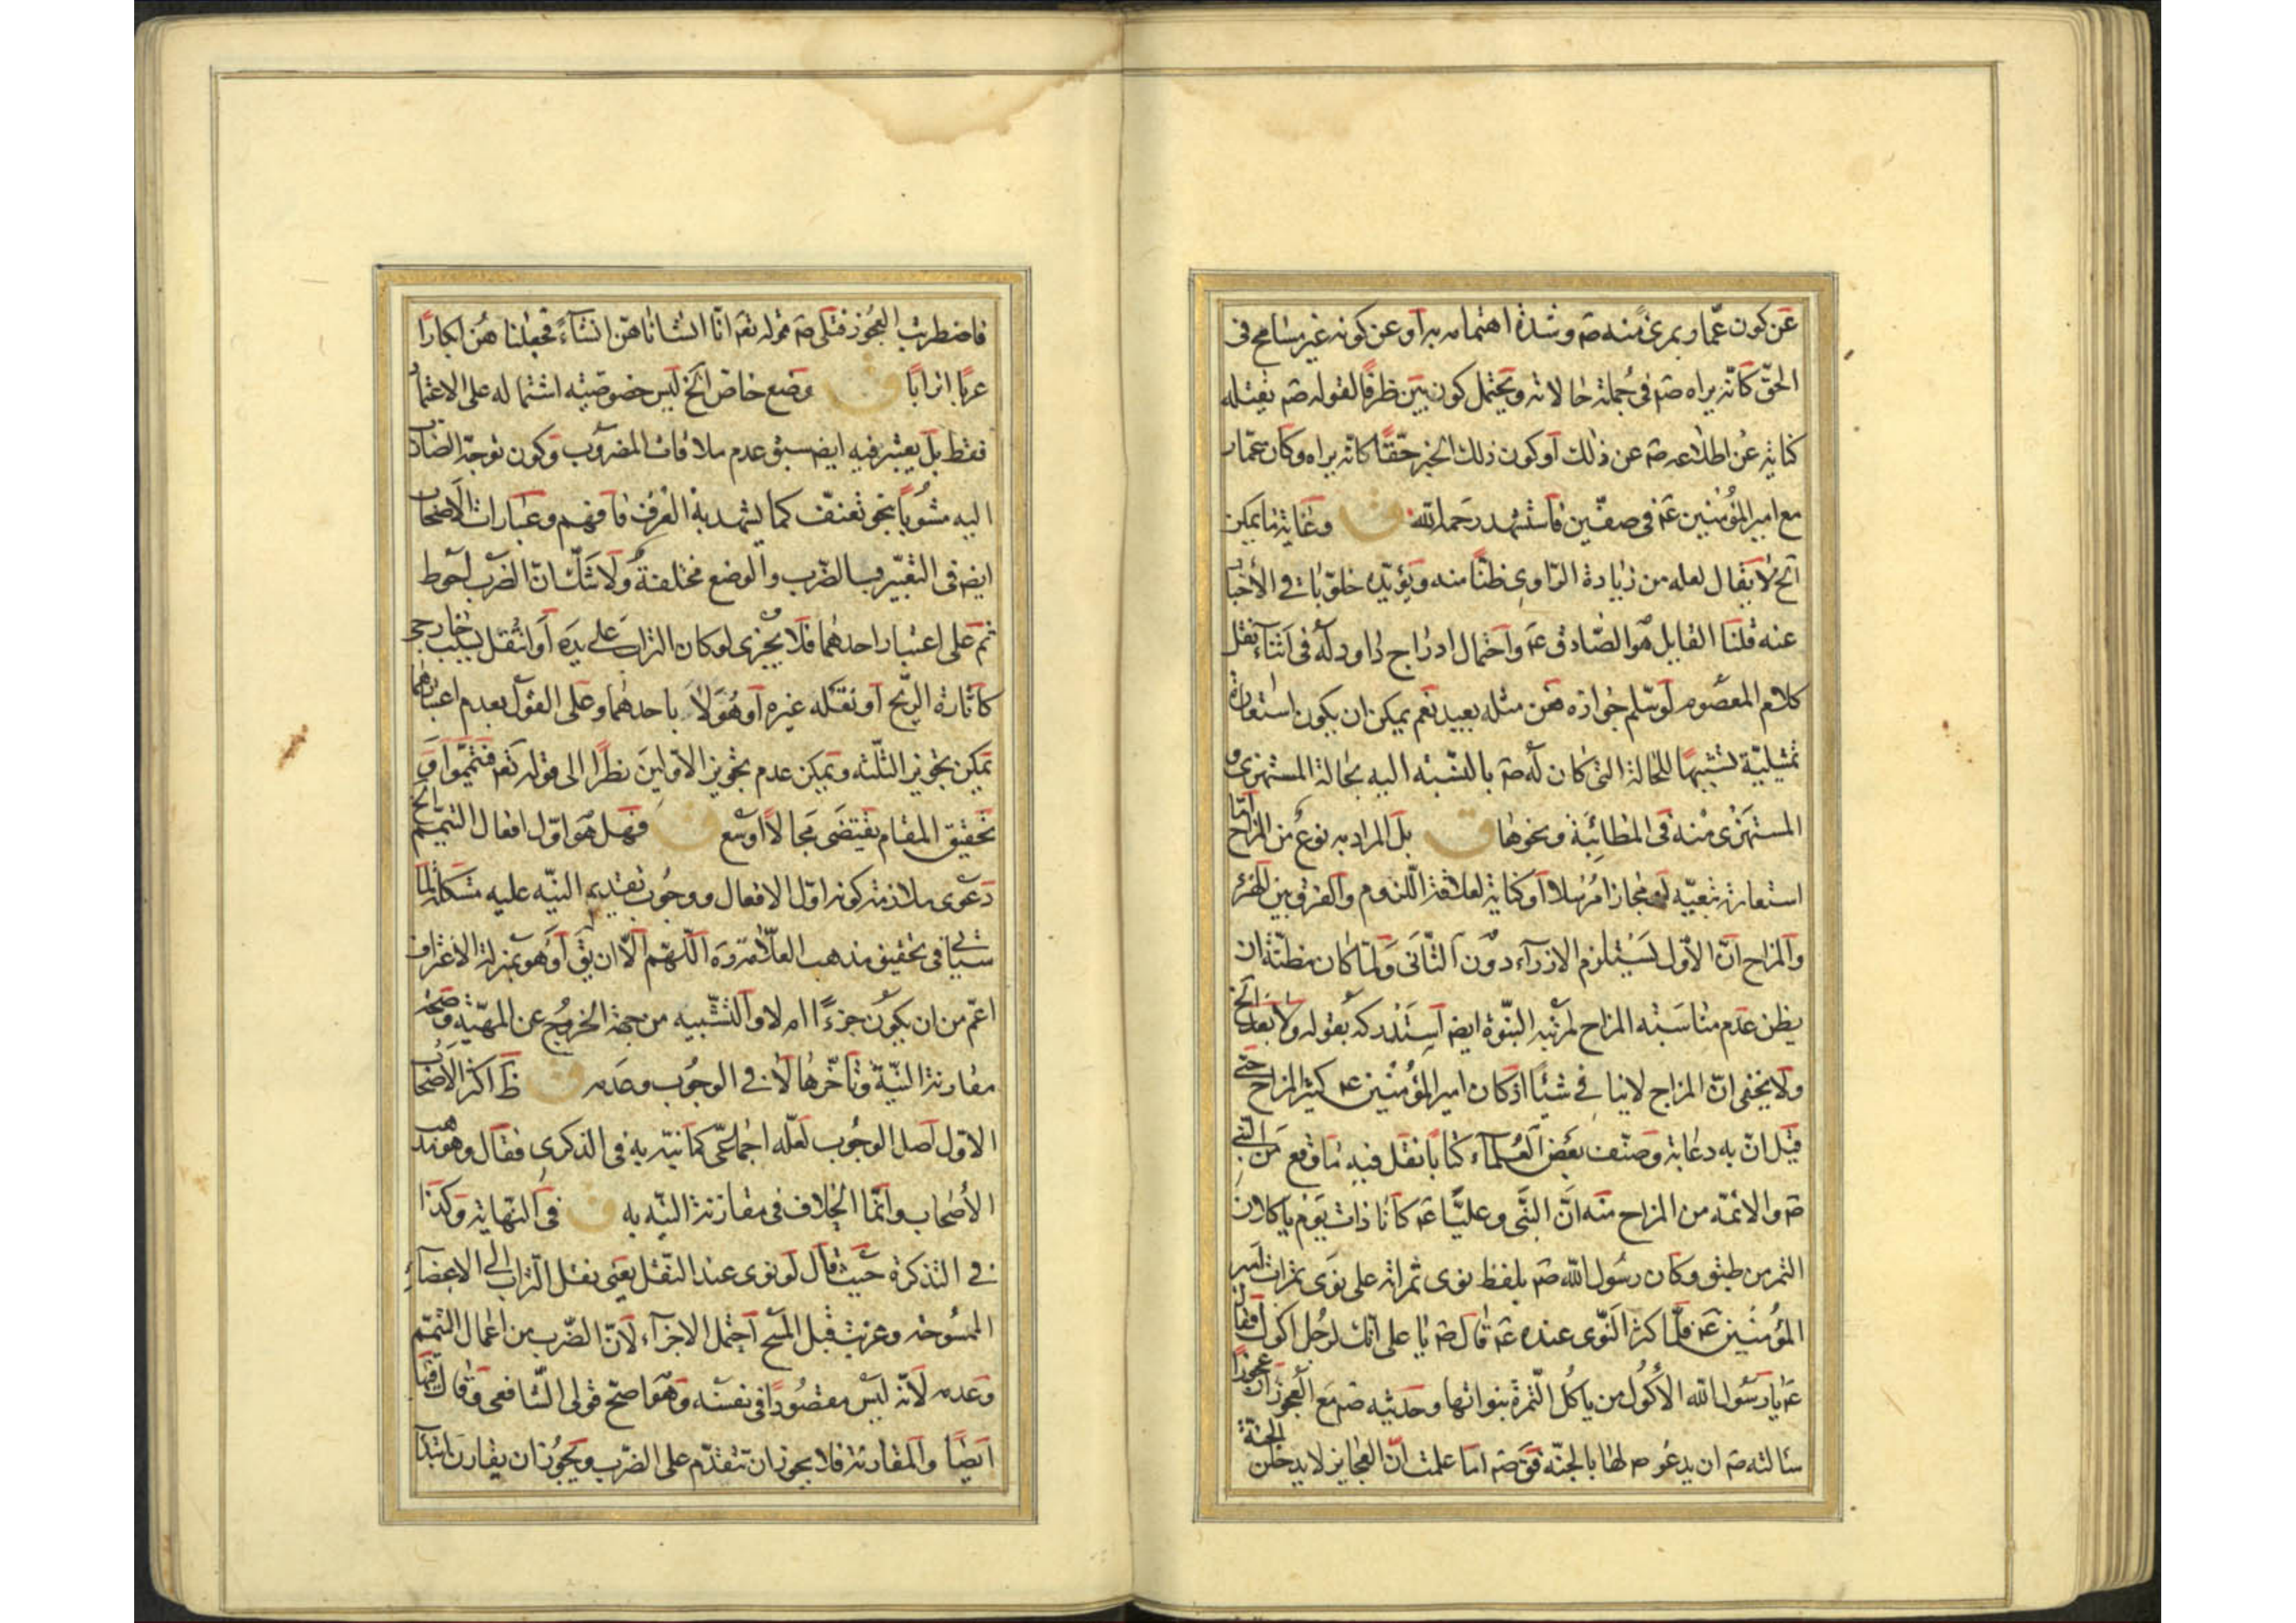 عن كون عمّار بمرئ منه صَ وشدة اهتمامه به أو عن كونه غير مسامح فى
الحقّ كانّه يراه صَم فى جملة حالاته ويحتمل كون بين ظرفًا لقوله صَم يفتله
كناية عن اطلاعه صَ عن ذلك أو كون ذلك الخبر حقّا كانّه يراه وكان عمّار
مع امير المؤمنين عَ فى صفّين فاستشهد رحمه الله ق وغاية ما يمكن
الخ لا يقال لعله من زيادة الرّاوى ظنّا منه ويؤيّده خلوّ باقى الأخبار
عنه قلنا القايل هو الصّادق عَ واحتمال ادراج داود له فى اثناء نقل
كلام المعصوم لو سّلم جوازه فمن مثله بعيد نعم يمكن ان يكون استعارة
تمثيليّة تشبيهًا للحالة التى كان له صَ بالنسبة اليه بحالة المستهزئ و
المستهزئ منه فى المطائبة ونحوها ق بل المراد به نوع من المزاح امّا
استعارة تبعيّة أو مجازا مرسلا أو كناية لعلاقة اللزوم والفرق بين الهزء
والمزاح انّ الأوّل يستلزم الازرآء دون الثّانى ولمّا كان مظنّة ان
يظن عدم مناسبة المزاح لمرتبه النبّوة ايضَ استدركه بقوله ولا بعد الخ
ولا يخفى انّ المزاح لا ينافى شيئًا اذ كان امير المؤمنين عَ كثير المزاح حتى
قيل انّ به دعابة وصنّف بعض العلمآء كتابًا نقل فيه ما وقع من النبى
صَ والائمّه من المزاح منه انّ النّبى وعليّا عَ كانا ذات يوم ياكلان
التمر من طبق وكان رسول الله صَم يلفظ نوى تمراته على نوى تمرات امير
المؤمنين عَ فلمّا كثر النّوى عنده عَ قال صَ يا على انّك لرجل اكول فقال
عَ يا رسول الله الأكول من ياكل التّمرة بنواتها وحديثه صَم مع العجوز ان عجوزًا
سالته صَ ان يدعو لها بالجنّة فقَ صَم اما علمت انّ العجايز لا يدخلن الجنّة
فاضطربت العجوز فتلى صَ قوله تعَ انّا انشاناهنّ انشآءً فجعلناهُنّ ابكارًا
عربًا اترابًا ق وضع خاصّ الخ ليس خصوصيته اشتماله على الاعتماد
فقط بل يعتبر فيه ايضَ سبق عدم ملاقات المضروب وكون توجّه الضارب
اليه مشوبًا بنحو تعنّف كما يشهد به العرف فافهم وعبارات الاصحاب
ايضَ فى التعبير بالضّرب والوضع مختلفة ولا شكّ انّ الضرب احوط
ثمّ على اعتبار احدهما فلا يجزى لو كان التراب على يده أو انتقل بسبب خارجى
كاثارة الرّيح أو نقله غيره أو هو لا باحدهما وعلى القول بعدم اعتبارهما
يمكن تجويز الثلّثه ويمكن عدم تجويز الأوّلين نظرًا الى قوله تعَ فتيمّموا وَ
تحقيق المقام يقتضى مجالًا اوسع ق فهل هو اوّل افعال التيمّم الخ
دعوى ملازمة كونه اوّل الافعال ووجوب تقديم النيّه عليه مشكلة لما
سيأتى فى تحقيق مذهب العلّامة رَه اللّهم الّا ان يقَ أو هو بمنزلة الاغتراف
اعمّ من ان يكون جزءًا ام لا والتشبيه من جهة الخروج عن المهيّة وصحّة
مقارنة النيّة وتأخّرها لا فى الوجوب وعدمه ق ظَ اكثر الاصحاب
الاوّل اصل الوجوب لعلّه اجماعىّ كما نبّه به فى الذكرى فقال وهو مذهب
الأصحاب وانّما الخلاف فى مقارنة النيّه به ق فى النهاية وكذا
فى التذكرة حيث قال لو نوى عند النّقل يعنى نقل التّراب الى الاعضآء
الممسوحة وعزبت قبل المسح احتمل الاجزآء لانّ الضّرب من اعمال التيمّم
وعدمه لانّه ليس مقصودًا فى نفسه وهو اصحّ قولى الشّافعى وقال فيها
ايضًا والمقارنة فلا يجوز ان تتقدّم على الضّرب ويجوز ان يقارن ابتدآء